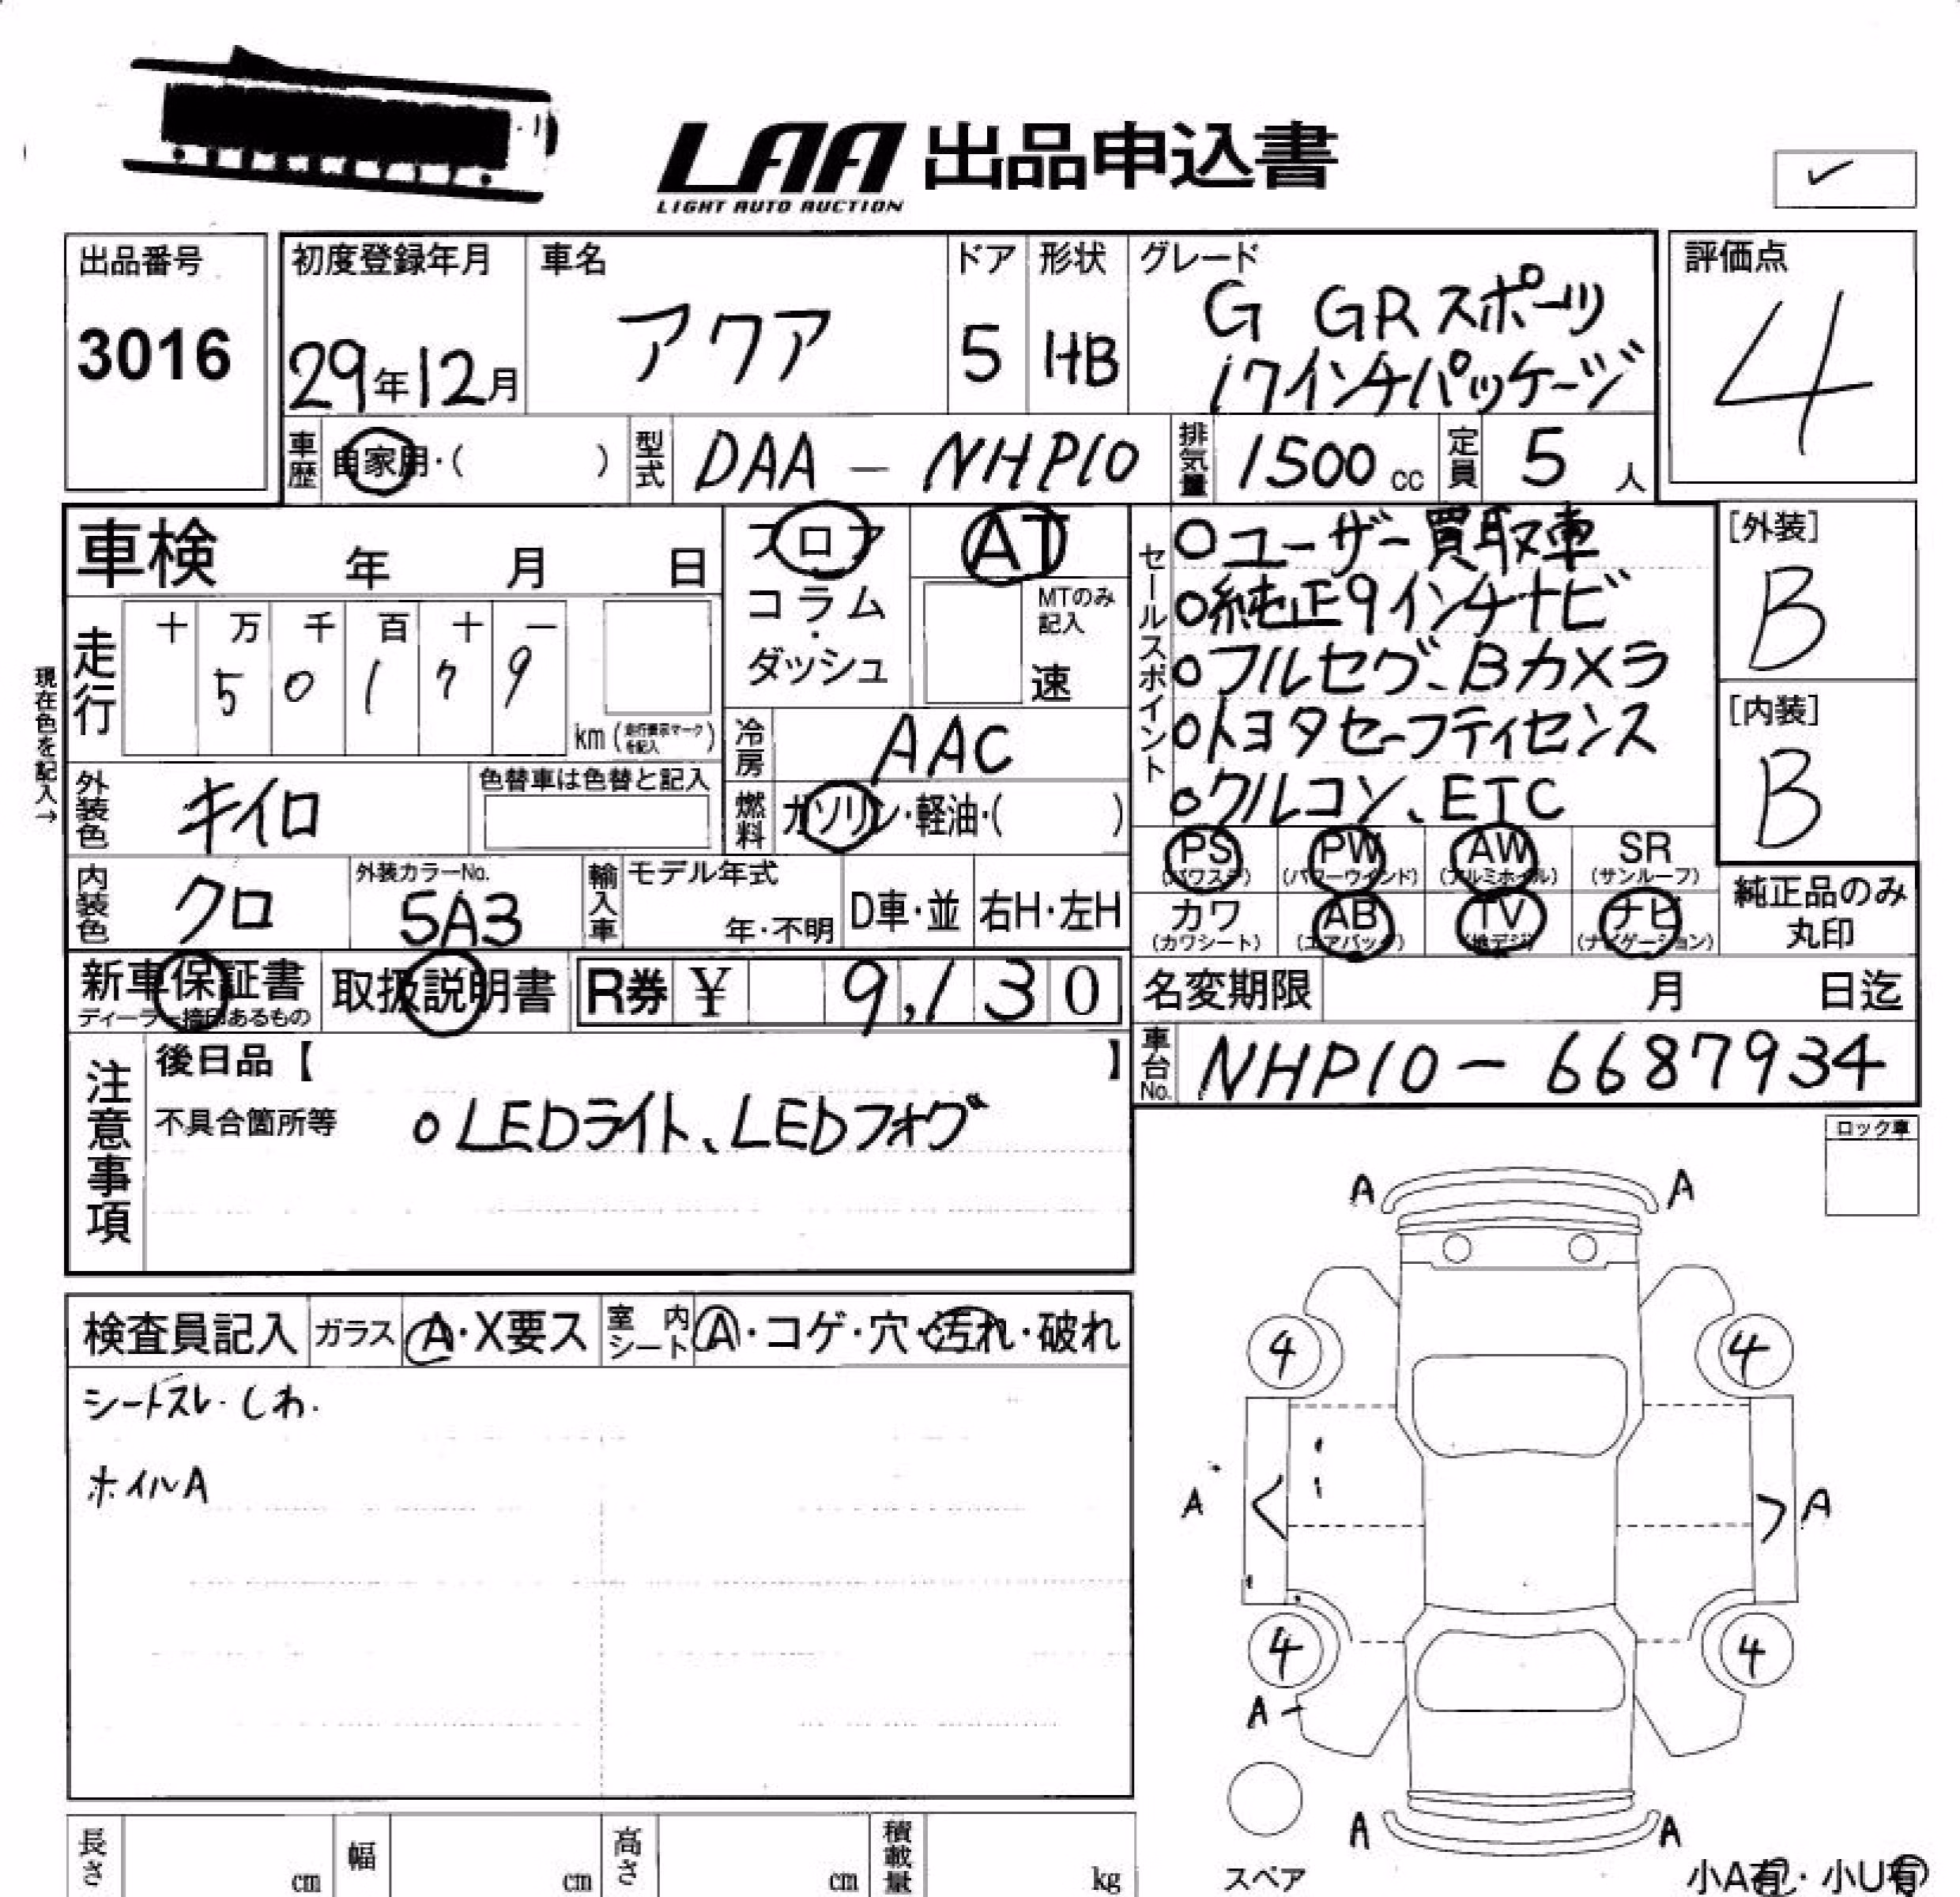 LAA 出品申込書
LIGHT AUTO AUCTION
出品番号
3016
初度登録年月
29年12月
車名
アクア
ドア
5
形状
HB
グレード
G GRスポーツ
17インチパッケージ
評価点
4
車歴
自家用・( )
型式
DAA - NHP10
排気量
1500cc
定員
5人
車検 年 月 日
フロア・コラム・ダッシュ
AT
MTのみ記入
速
セールスポイント
○ユーザー買取車
○純正9インチナビ
○フルセグ、Bカメラ
○トヨタセーフティセンス
○クルコン、ETC
[外装]
B
[内装]
B
現在色を記入→
走行
十 万 千 百 十 一
5 0 1 7 9
km(走行表示マークを記入)
冷房
AAC
燃料
ガソリン・軽油・( )
外装色
キイロ
色替車は色替と記入
内装色
クロ
外装カラーNo.
5A3
輸入車
モデル年式
年・不明
D車・並
右H・左H
PS (パワステ)
PW (パワーウインド)
AW (アルミホイル)
SR (サンルーフ)
カワ (カワシート)
AB (エアバック)
TV (地デジ)
ナビ (ナビゲーション)
純正品のみ丸印
新車保証書
ディーラー捺印あるもの
取扱説明書
R券 ¥ 9,130
名変期限 月 日迄
車台No.
NHP10-6687934
注意事項
後日品【 】
不具合箇所等
○LEDライト、LEDフォグ
ロック車
検査員記入
ガラス
A・X要ス
室内シート
A・コゲ・穴・汚れ・破れ
シートスレ・しわ.
ホイルA
A A
4 4
A A
4 4
A
A A
スペア
小A有・小U有
長さ cm
幅 cm
高さ cm
積載量 kg